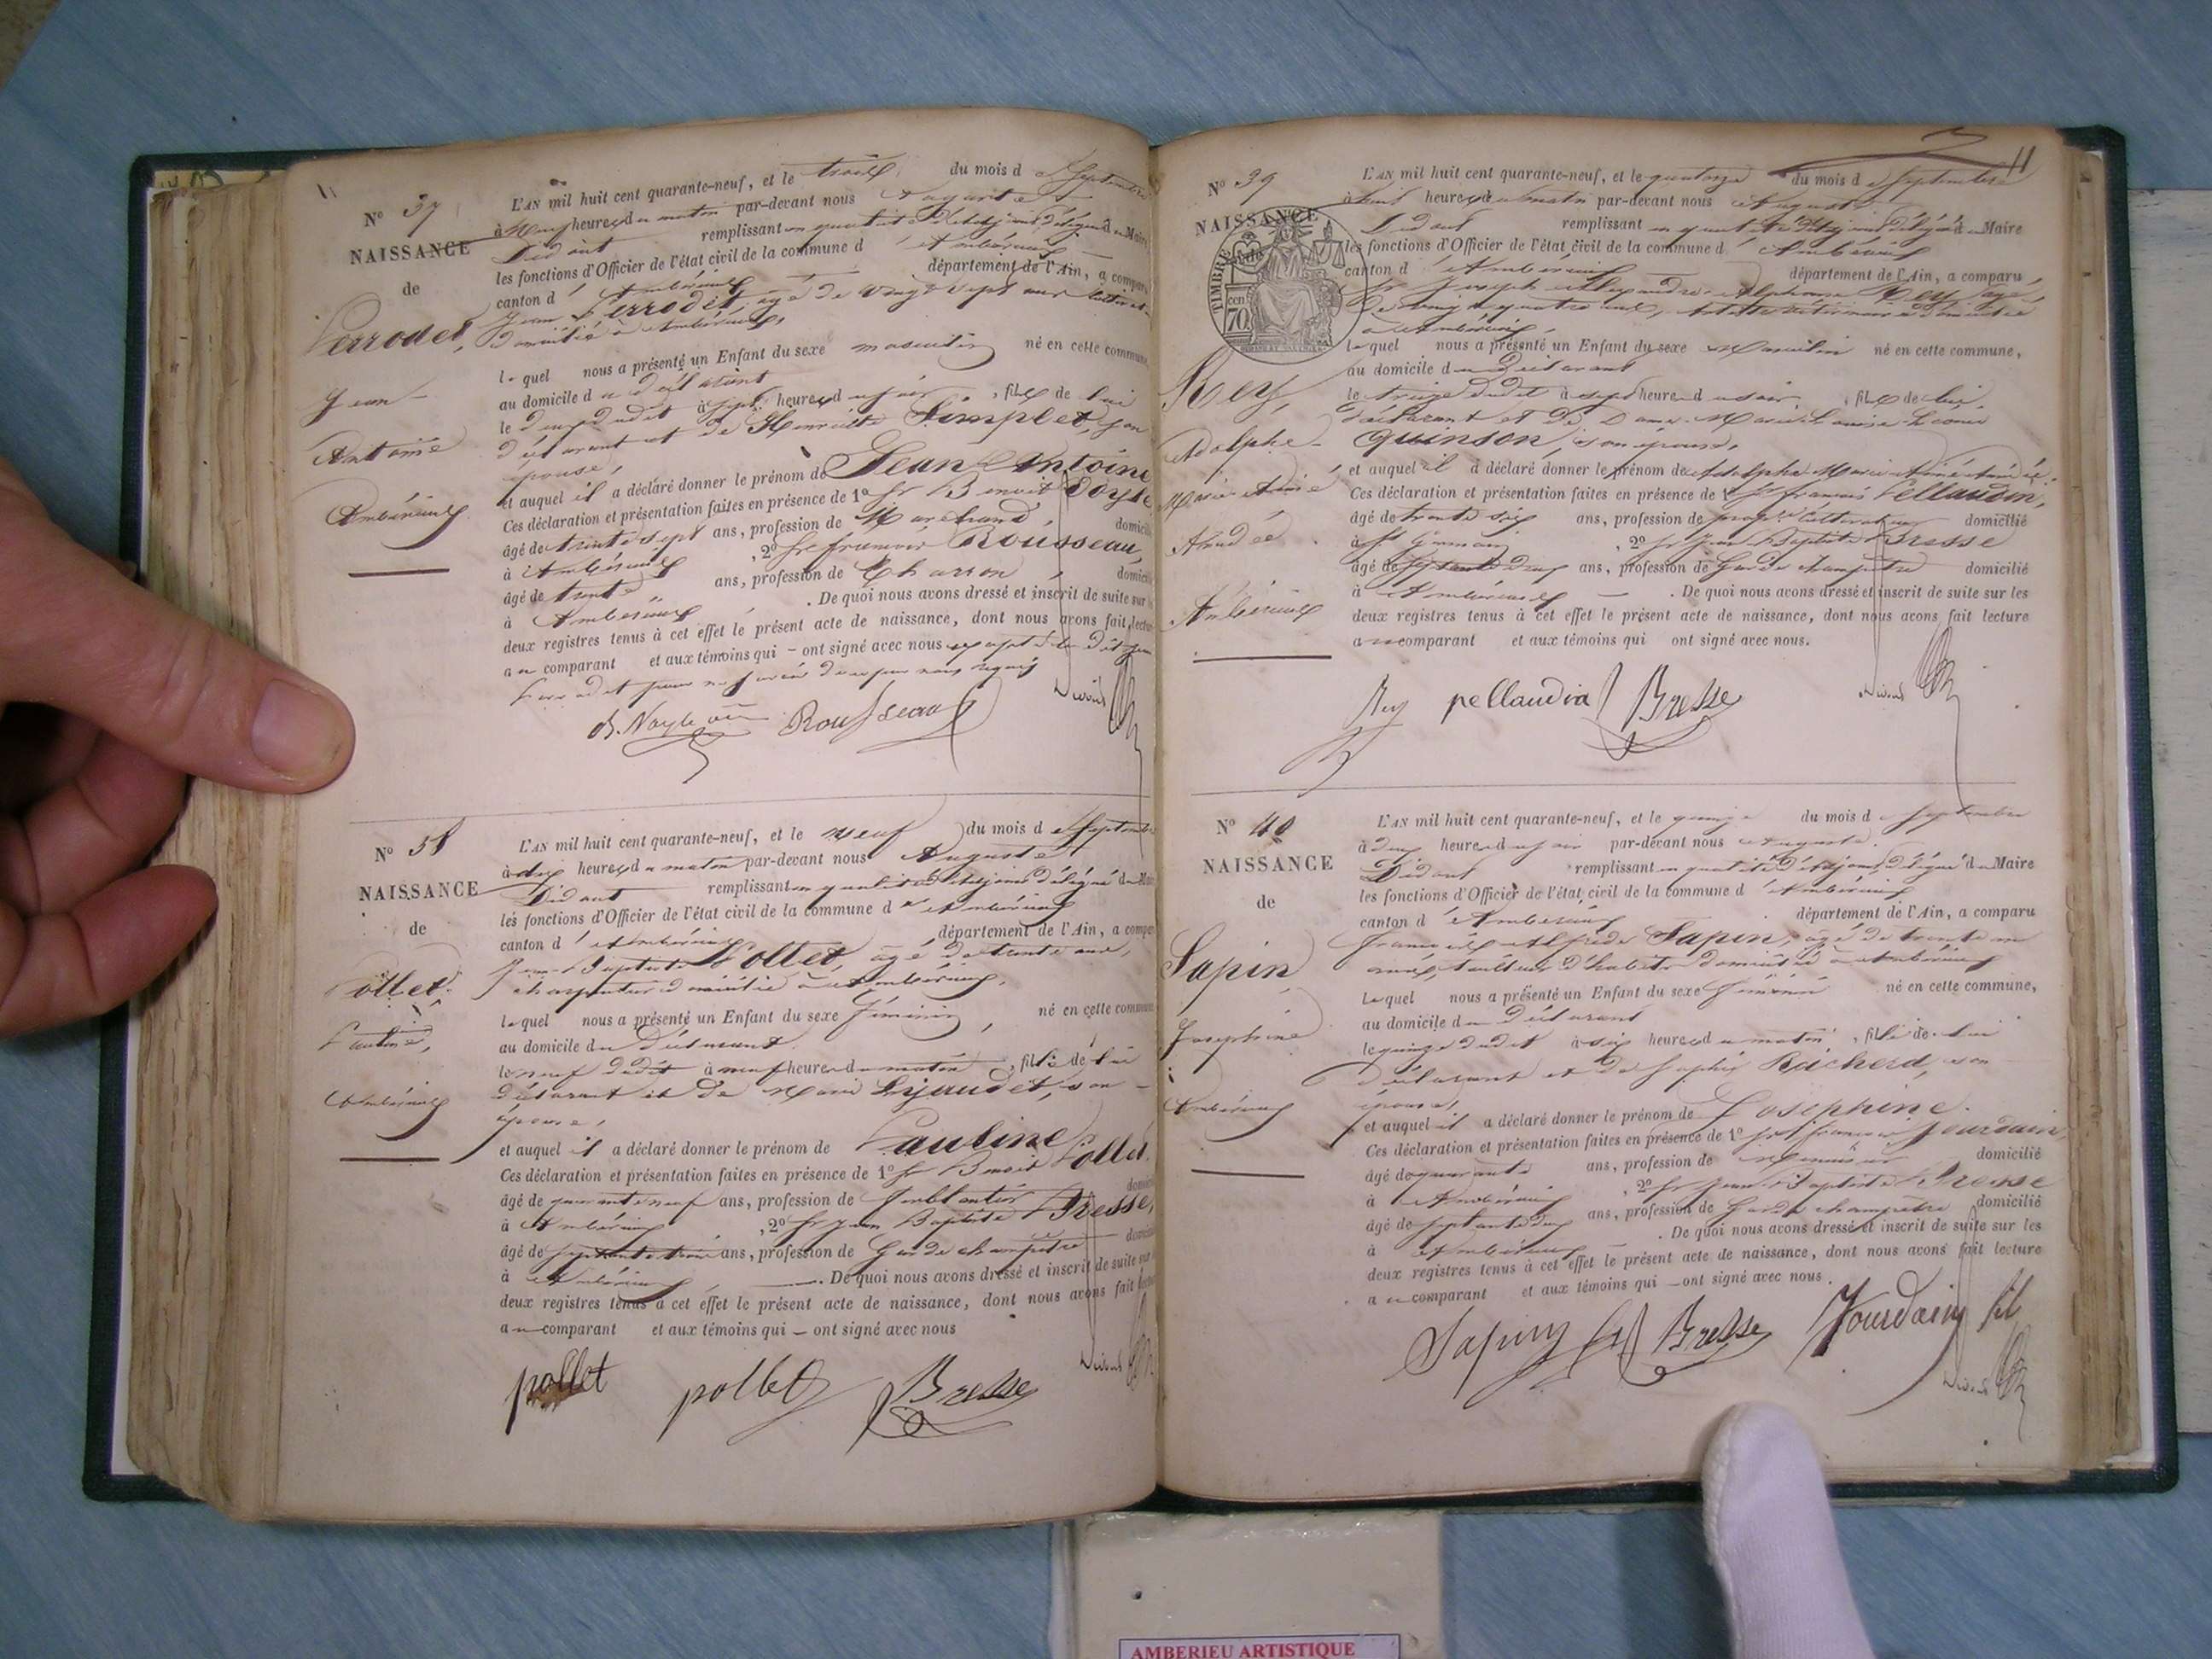 N° 37
NAISSANCE
de
Perrodet,
Jean-
Antoine
Ambérieux
L'AN mil huit cent quarante-neuf, et le trois du mois de Septembre
à Neuf heures du matin par-devant nous Auguste
Didout remplissant en qualité d'adjoint délégué du Maire
les fonctions d'Officier de l'état civil de la commune d'Ambérieux
canton d'Ambérieux département de l'Ain, a comparu
Jean Perrodet, âgé de vingt sept ans
domicilié à Ambérieux,
lequel nous a présenté un Enfant du sexe masculin né en cette commune
au domicile du déclarant
le deux dudit à sept heures du soir, fils de lui
déclarant et de Henriette Simplet, son
épouse,
et auquel il a déclaré donner le prénom de Jean Antoine
Ces déclaration et présentation faites en présence de 1° Sr Benoit
âgé de trente sept ans, profession de Marchand, domicilié
à Ambérieux, 2° Sr François Rousseau,
âgé de trente ans, profession de Charron, domicilié
à Ambérieux. De quoi nous avons dressé et inscrit de suite sur les
deux registres tenus à cet effet le présent acte de naissance, dont nous avons fait lecture
au comparant et aux témoins qui - ont signé avec nous excepté le dit Jean
Perrodet pour ne savoir de ce par nous requis
Rousseau
N° 38
NAISSANCE
de
Pollet
Pauline,
Ambérieux
L'AN mil huit cent quarante-neuf, et le neuf du mois de Septembre
à dix heures du matin par-devant nous Auguste
Didout remplissant en qualité d'adjoint délégué du Maire
les fonctions d'Officier de l'état civil de la commune d'Ambérieux
canton d'Ambérieux département de l'Ain, a comparu
Jean-Baptiste Pollet, âgé de trente ans,
charpentier domicilié à Ambérieux,
lequel nous a présenté un Enfant du sexe féminin, né en cette commune
au domicile du déclarant.
le neuf dudit à neuf heures du matin, fille de lui
déclarant et de Marie Lijaudet, son
épouse,
et auquel il a déclaré donner le prénom de Pauline
Ces déclaration et présentation faites en présence de 1° Sr Benoit Pollet.
âgé de quarante neuf ans, profession de ferblantier domicilié
à Ambérieux, 2° Sr Jean Baptiste Bresse,
âgé de septante trois ans, profession de Garde champêtre domicilié
à Ambérieux, . De quoi nous avons dressé et inscrit de suite sur
deux registres tenus à cet effet le présent acte de naissance, dont nous avons fait lecture
au comparant et aux témoins qui - ont signé avec nous
pollet pollet Bresse
11
N° 39
NAISSANCE
TIMBRE
cen
70
Rey,
Adolphe-
Marie Aimé
Amédée
Ambérieux
L'AN mil huit cent quarante-neuf, et le quatorze du mois de Septembre
à huit heures du matin par-devant nous Auguste
Didout remplissant en qualité d'adjoint délégué du Maire
les fonctions d'Officier de l'état civil de la commune d'Ambérieux
canton d'Ambérieux département de l'Ain, a comparu
Sr Joseph Alexandre Alphonse Rey, âgé
de vingt quatre ans, artiste vétérinaire domicilié
à Ambérieux,
lequel nous a présenté un Enfant du sexe Masculin né en cette commune,
au domicile du Déclarant
le treize dudit à sept heures du soir, fils de lui
déclarant et de Dame Marie Louise
Quinson, son épouse,
et auquel il a déclaré donner le prénom de Adolphe Marie Aimé Amédée.
Ces déclaration et présentation faites en présence de 1° Sr François Pellaudin,
âgé de trente six ans, profession de propre cultivateur domicilié
à St Germain, 2° Sr Jean Baptiste Bresse
âgé de septante deux ans, profession de Garde champêtre domicilié
à Ambérieux — . De quoi nous avons dressé et inscrit de suite sur les
deux registres tenus à cet effet le présent acte de naissance, dont nous avons fait lecture
au comparant et aux témoins qui ont signé avec nous.
Rey pellaudin Bresse
N° 40
NAISSANCE
de
Sapin,
Josephine
Ambérieux
L'AN mil huit cent quarante-neuf, et le quinze du mois de Septembre
à deux heures du soir par-devant nous Auguste
Didout remplissant en qualité d'adjoint délégué du Maire
les fonctions d'Officier de l'état civil de la commune d'Ambérieux
canton d'Ambérieux département de l'Ain, a comparu
François Alfrède Sapin, âgé de trente un
ans, tailleur d'habits domicilié à Ambérieux
Lequel nous a présenté un Enfant du sexe féminin né en cette commune,
au domicile du Déclarant
le quinze dudit à six heures du matin, fille de lui
déclarant et de Sophie Reicherd, son
épouse,
et auquel il a déclaré donner le prénom de Josephine.
Ces déclaration et présentation faites en présence de 1° Sr françois Jourdain,
âgé de quarante ans, profession de Menuisier domicilié
à Ambérieux, 2° Sr Jean Baptiste Bresse
âgé de septante deux ans, profession de Garde champêtre domicilié
à Ambérieux . De quoi nous avons dressé et inscrit de suite sur les
deux registres tenus à cet effet le présent acte de naissance, dont nous avons fait lecture
au comparant et aux témoins qui - ont signé avec nous.
Sapin Bresse Jourdain fil
AMBERIEU ARTISTIQUE